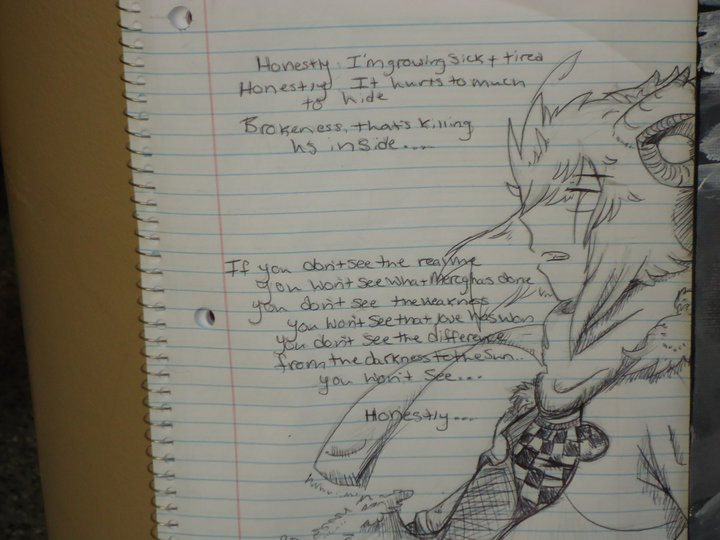 Honesty: I'm growing sick + tired
Honestly It hurts to much
to hide
Brokeness, that's killing
us inside....
If you don't see the real me
you won't see what Mercy has done
you don't see the weakness
you won't see that love has won
you don't see the difference
from the darkness to the sun...
you won't see...
Honestly...